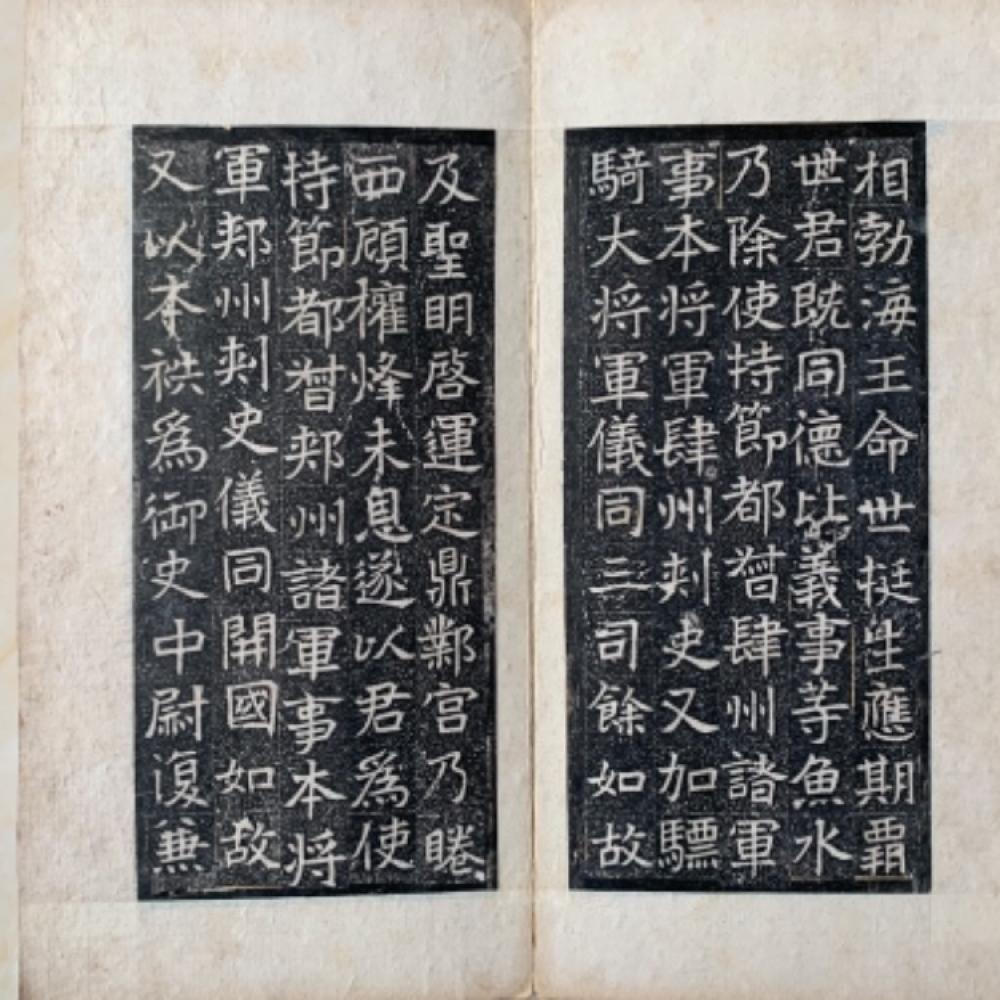 相勃海王命世挺生應期霸
世君既同德比義事等魚水
乃除使持節都督肆州諸軍
事本將軍肆州刺史又加驃
騎大將軍儀同三司餘如故
及聖明啓運定鼎鄴宮乃睠
西顧權烽未息遂以君為使
持節都督郟州諸軍事本將
軍郟州刺史儀同開國如故
又以本袟為御史中尉復兼